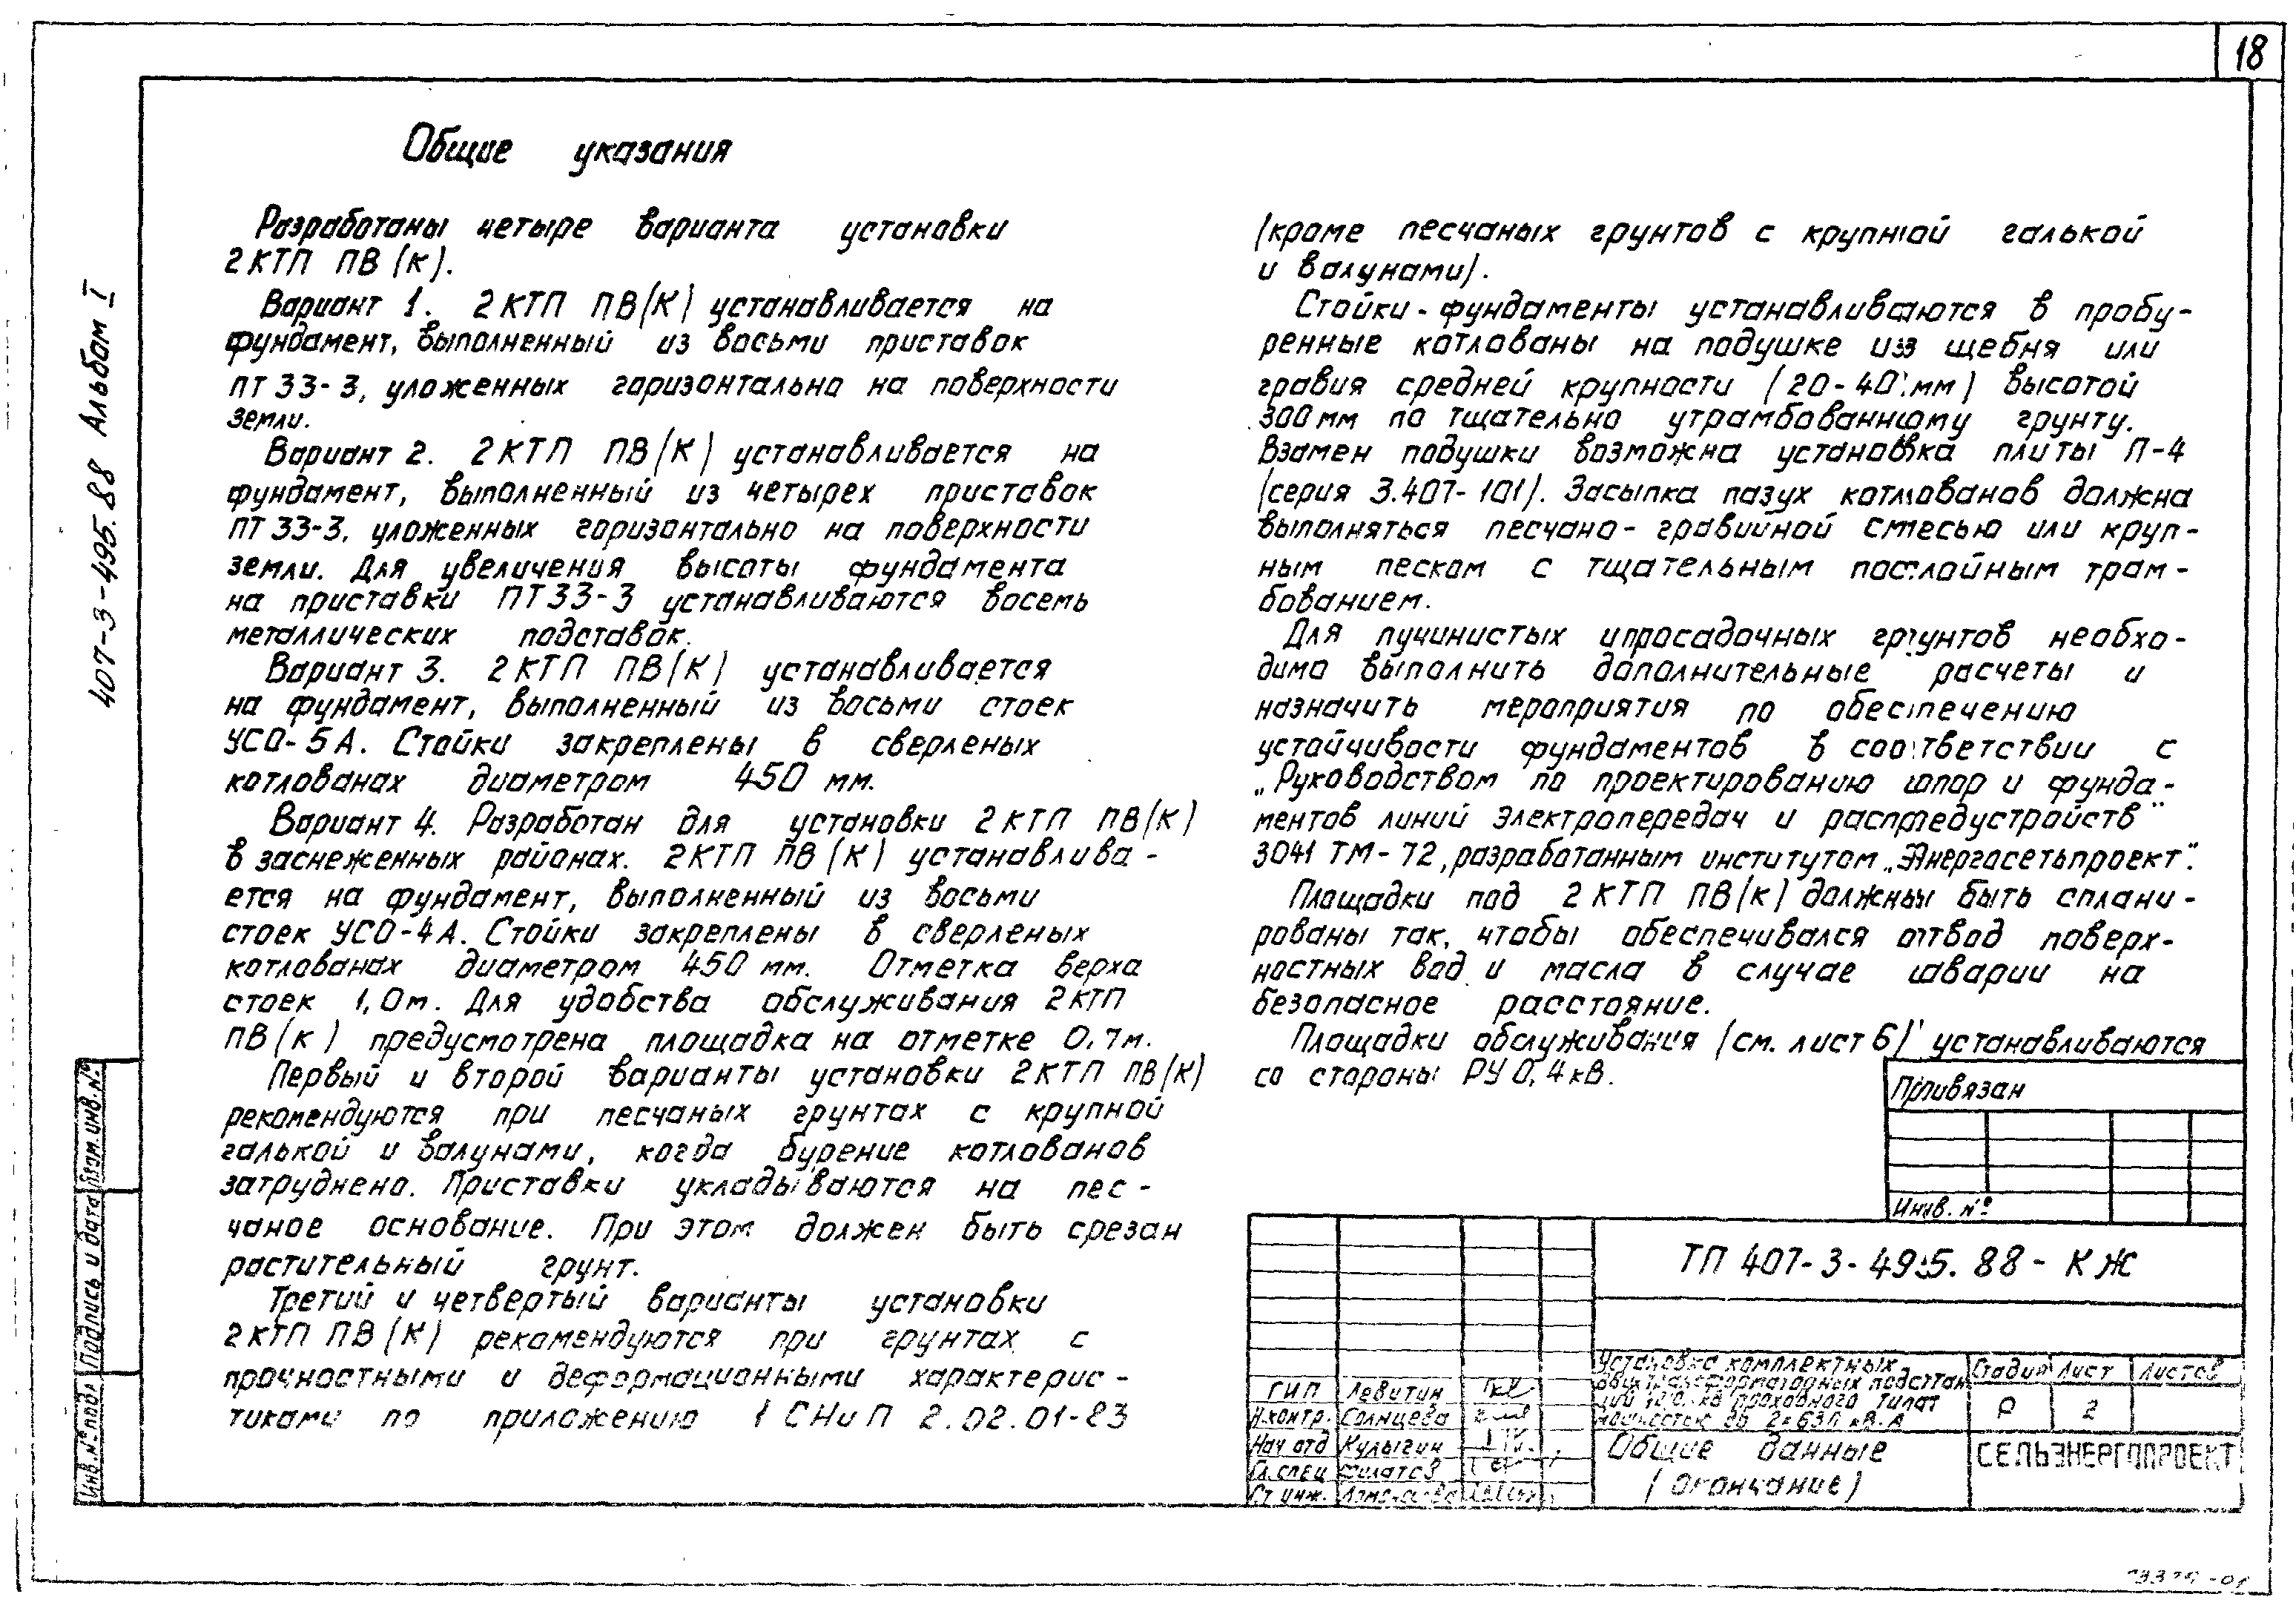 18
407-3-495.88 Альбом I
Общие указания
Разработаны четыре варианта установки
2КТП ПВ(К).
Вариант 1. 2КТП ПВ(К) устанавливается на
фундамент, выполненный из восьми приставок
ПТ 33-3, уложенных горизонтально на поверхности
земли.
Вариант 2. 2КТП ПВ(К) устанавливается на
фундамент, выполненный из четырех приставок
ПТ 33-3, уложенных горизонтально на поверхности
земли. Для увеличения высоты фундамента
на приставки ПТ33-3 устанавливаются восемь
металлических подставок.
Вариант 3. 2КТП ПВ(К) устанавливается
на фундамент, выполненный из восьми стоек
УСО-5А. Стойки закреплены в сверленых
котлованах диаметром 450 мм.
Вариант 4. Разработан для установки 2КТП ПВ(К)
в заснеженных районах. 2КТП ПВ(К) устанавлива-
ется на фундамент, выполненный из восьми
стоек УСО-4А. Стойки закреплены в сверленых
котлованах диаметром 450 мм. Отметка верха
стоек 1,0м. Для удобства обслуживания 2КТП
ПВ(К) предусмотрена площадка на отметке 0,7м.
Первый и второй варианты установки 2КТП ПВ(К)
рекомендуются при песчаных грунтах с крупной
галькой и валунами, когда бурение котлованов
затруднено. Приставки укладываются на пес-
чаное основание. При этом должен быть срезан
растительный грунт.
Третий и четвертый варианты установки
2КТП ПВ(К) рекомендуются при грунтах с
прочностными и деформационными характерис-
тиками по приложению 1 СНиП 2.02.01-83
(кроме песчаных грунтов с крупной галькой
и валунами).
Стойки-фундаменты устанавливаются в пробу-
ренные котлованы на подушке из щебня или
гравия средней крупности (20-40 мм) высотой
300мм по тщательно утрамбованному грунту.
Взамен подушки возможна установка плиты П-4
(серия 3.407-101). Засыпка пазух котлованов должна
выполняться песчано-гравийной смесью или круп-
ным песком с тщательным послойным трам-
бованием.
Для пучинистых и просадочных грунтов необхо-
димо выполнить дополнительные расчеты и
назначить мероприятия по обеспечению
устойчивости фундаментов в соответствии с
„Руководством по проектированию опор и фунда-
ментов линий электропередач и распредустройств"
3041 ТМ-72, разработанным институтом „Энергосетьпроект".
Площадки под 2КТП ПВ(К) должны быть сплани-
рованы так, чтобы обеспечивался отвод поверх-
ностных вод и масла в случае аварии на
безопасное расстояние.
Площадки обслуживания (см. лист 6) устанавливаются
со стороны РУ 0,4кВ.
Привязан
Инв. №
ТП 407-3-495.88-КЖ
Установка комплектных
двухтрансформаторных подстан
ций проходного типа
мощностью до 2×630 кВ.А
Стадия Лист Листов
Р 2
Общие данные
(окончание)
СЕЛЬЭНЕРГОПРОЕКТ
ГИП Левитин
Н.контр. Солнцева
Нач отд Кулыгин
Гл.спец Филатов
Ст инж.
Взам. инв. №
Подпись и дата
Инв. № подл